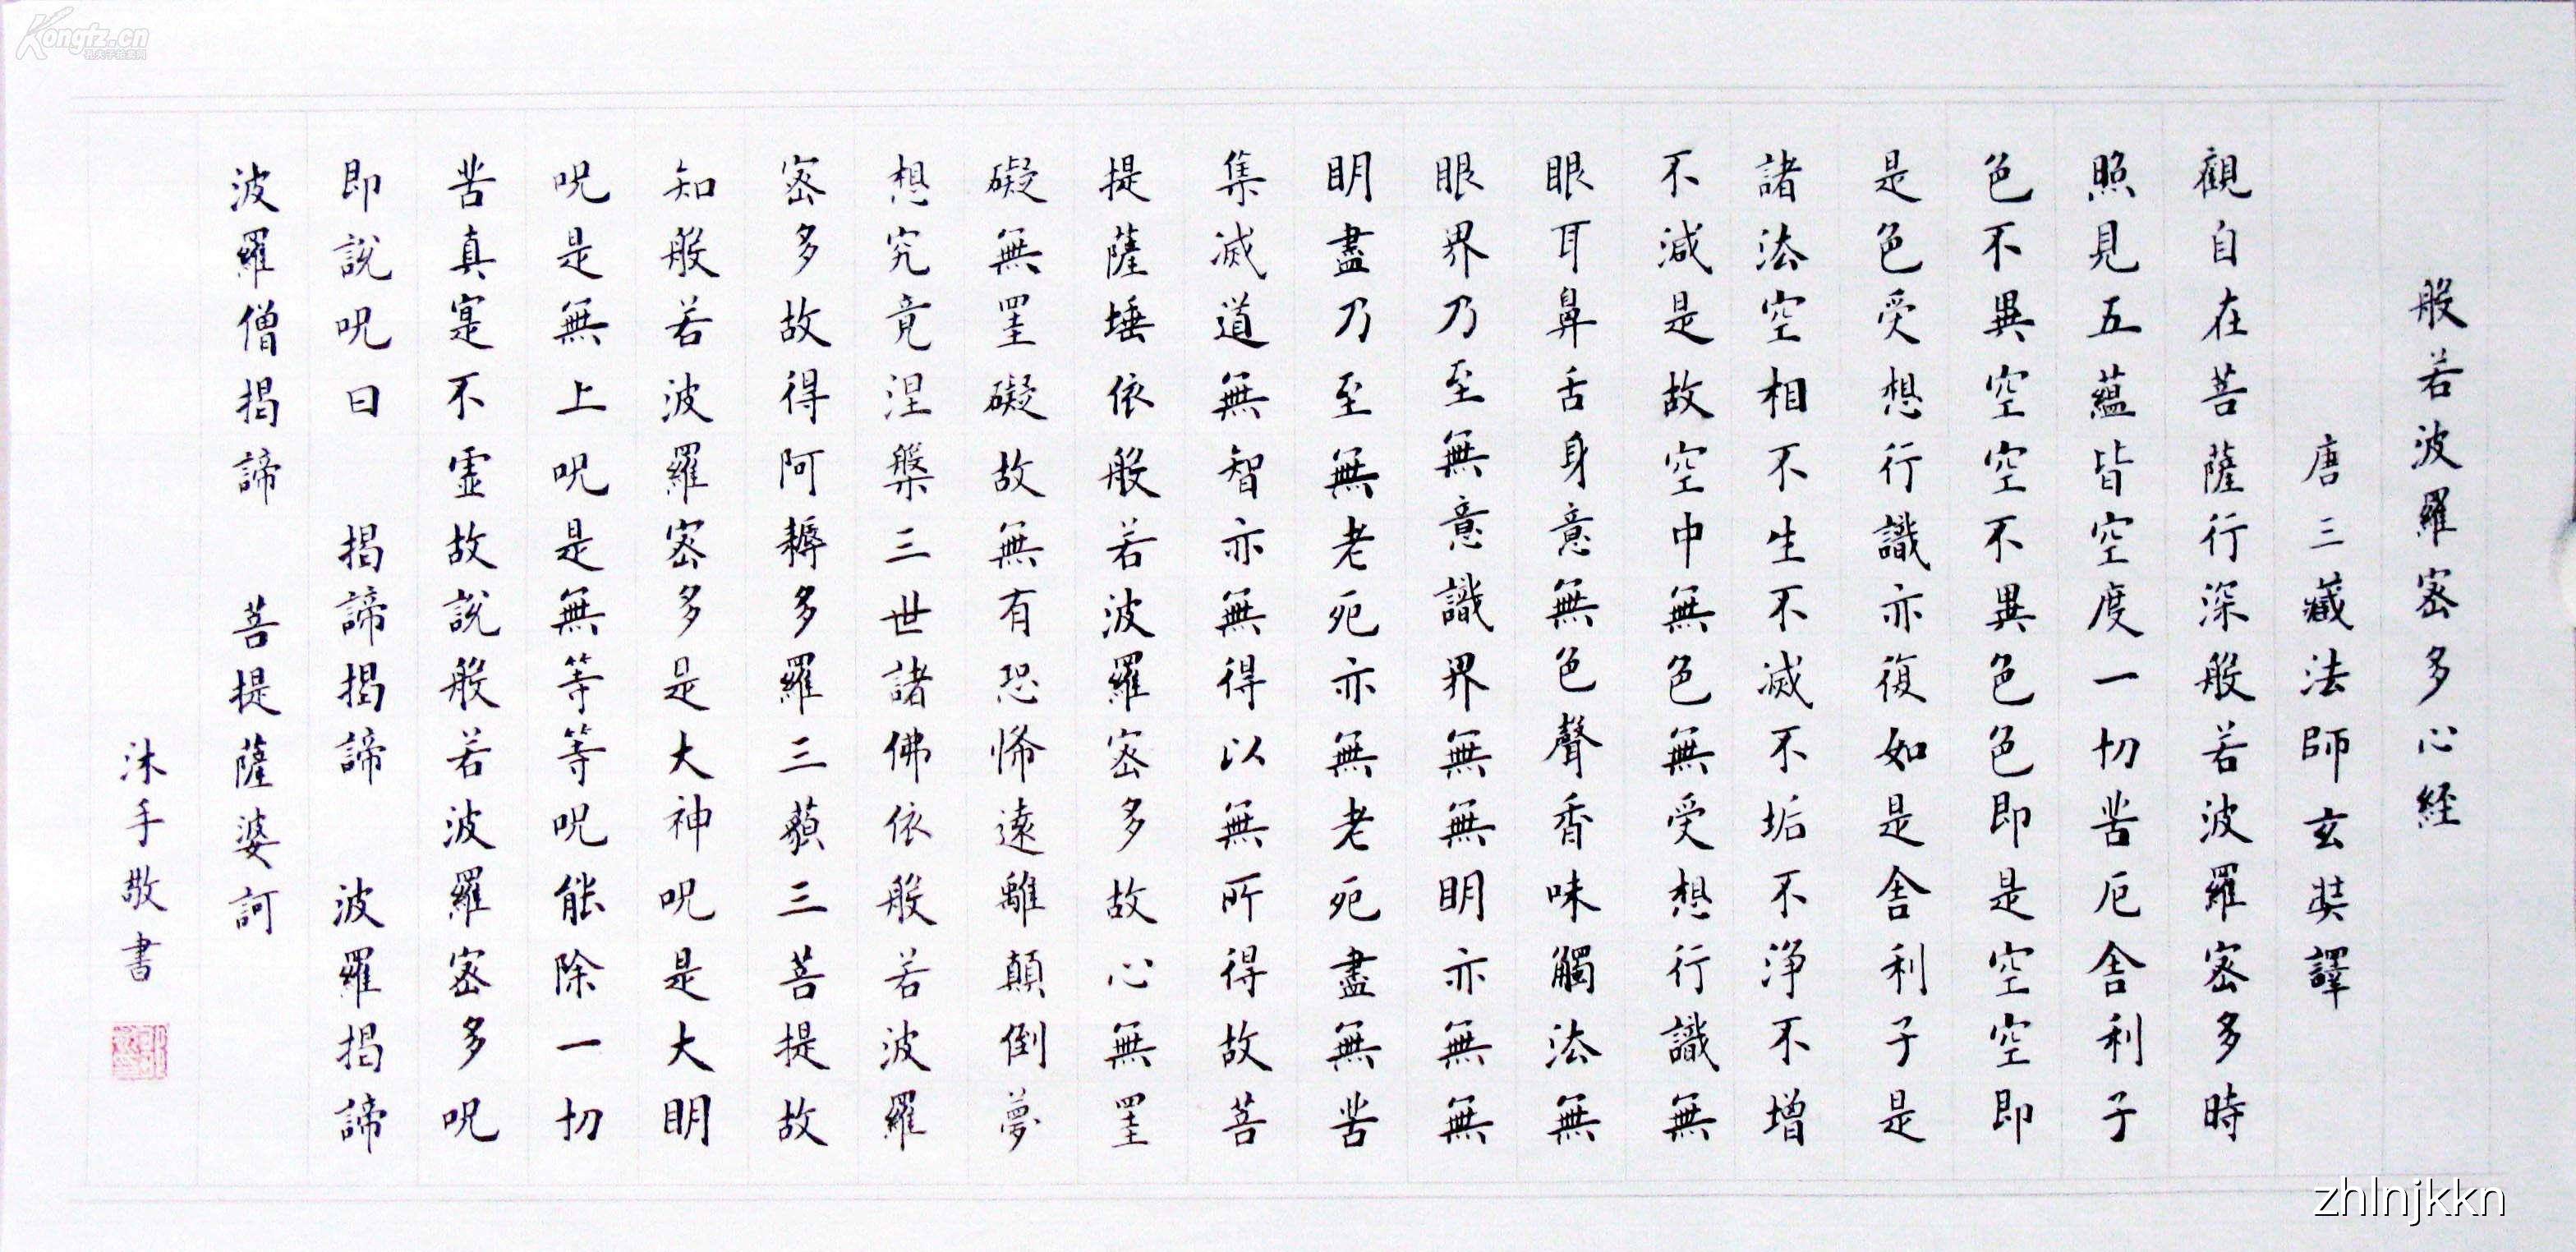 般若波羅密多心経
唐三藏法師玄奘譯
觀自在菩薩行深般若波羅密多時
照見五蘊皆空度一切苦厄舍利子
色不異空空不異色色即是空空即
是色受想行識亦復如是舍利子是
諸法空相不生不滅不垢不淨不增
不減是故空中無色無受想行識無
眼耳鼻舌身意無色聲香味觸法無
眼界乃至無意識界無無明亦無無
明盡乃至無老死亦無老死盡無苦
集滅道無智亦無得以無所得故菩
提薩埵依般若波羅密多故心無罣
礙無罣礙故無有恐怖遠離顛倒夢
想究竟涅槃三世諸佛依般若波羅
密多故得阿耨多羅三藐三菩提故
知般若波羅密多是大神呪是大明
呪是無上呪是無等等呪能除一切
苦真寔不虛故說般若波羅密多呪
即說呪曰 揭諦揭諦 波羅揭諦
波羅僧揭諦 菩提薩婆訶
沐手敬書
Kongfz.cn
孔夫子拍卖网
zhlnjkkn